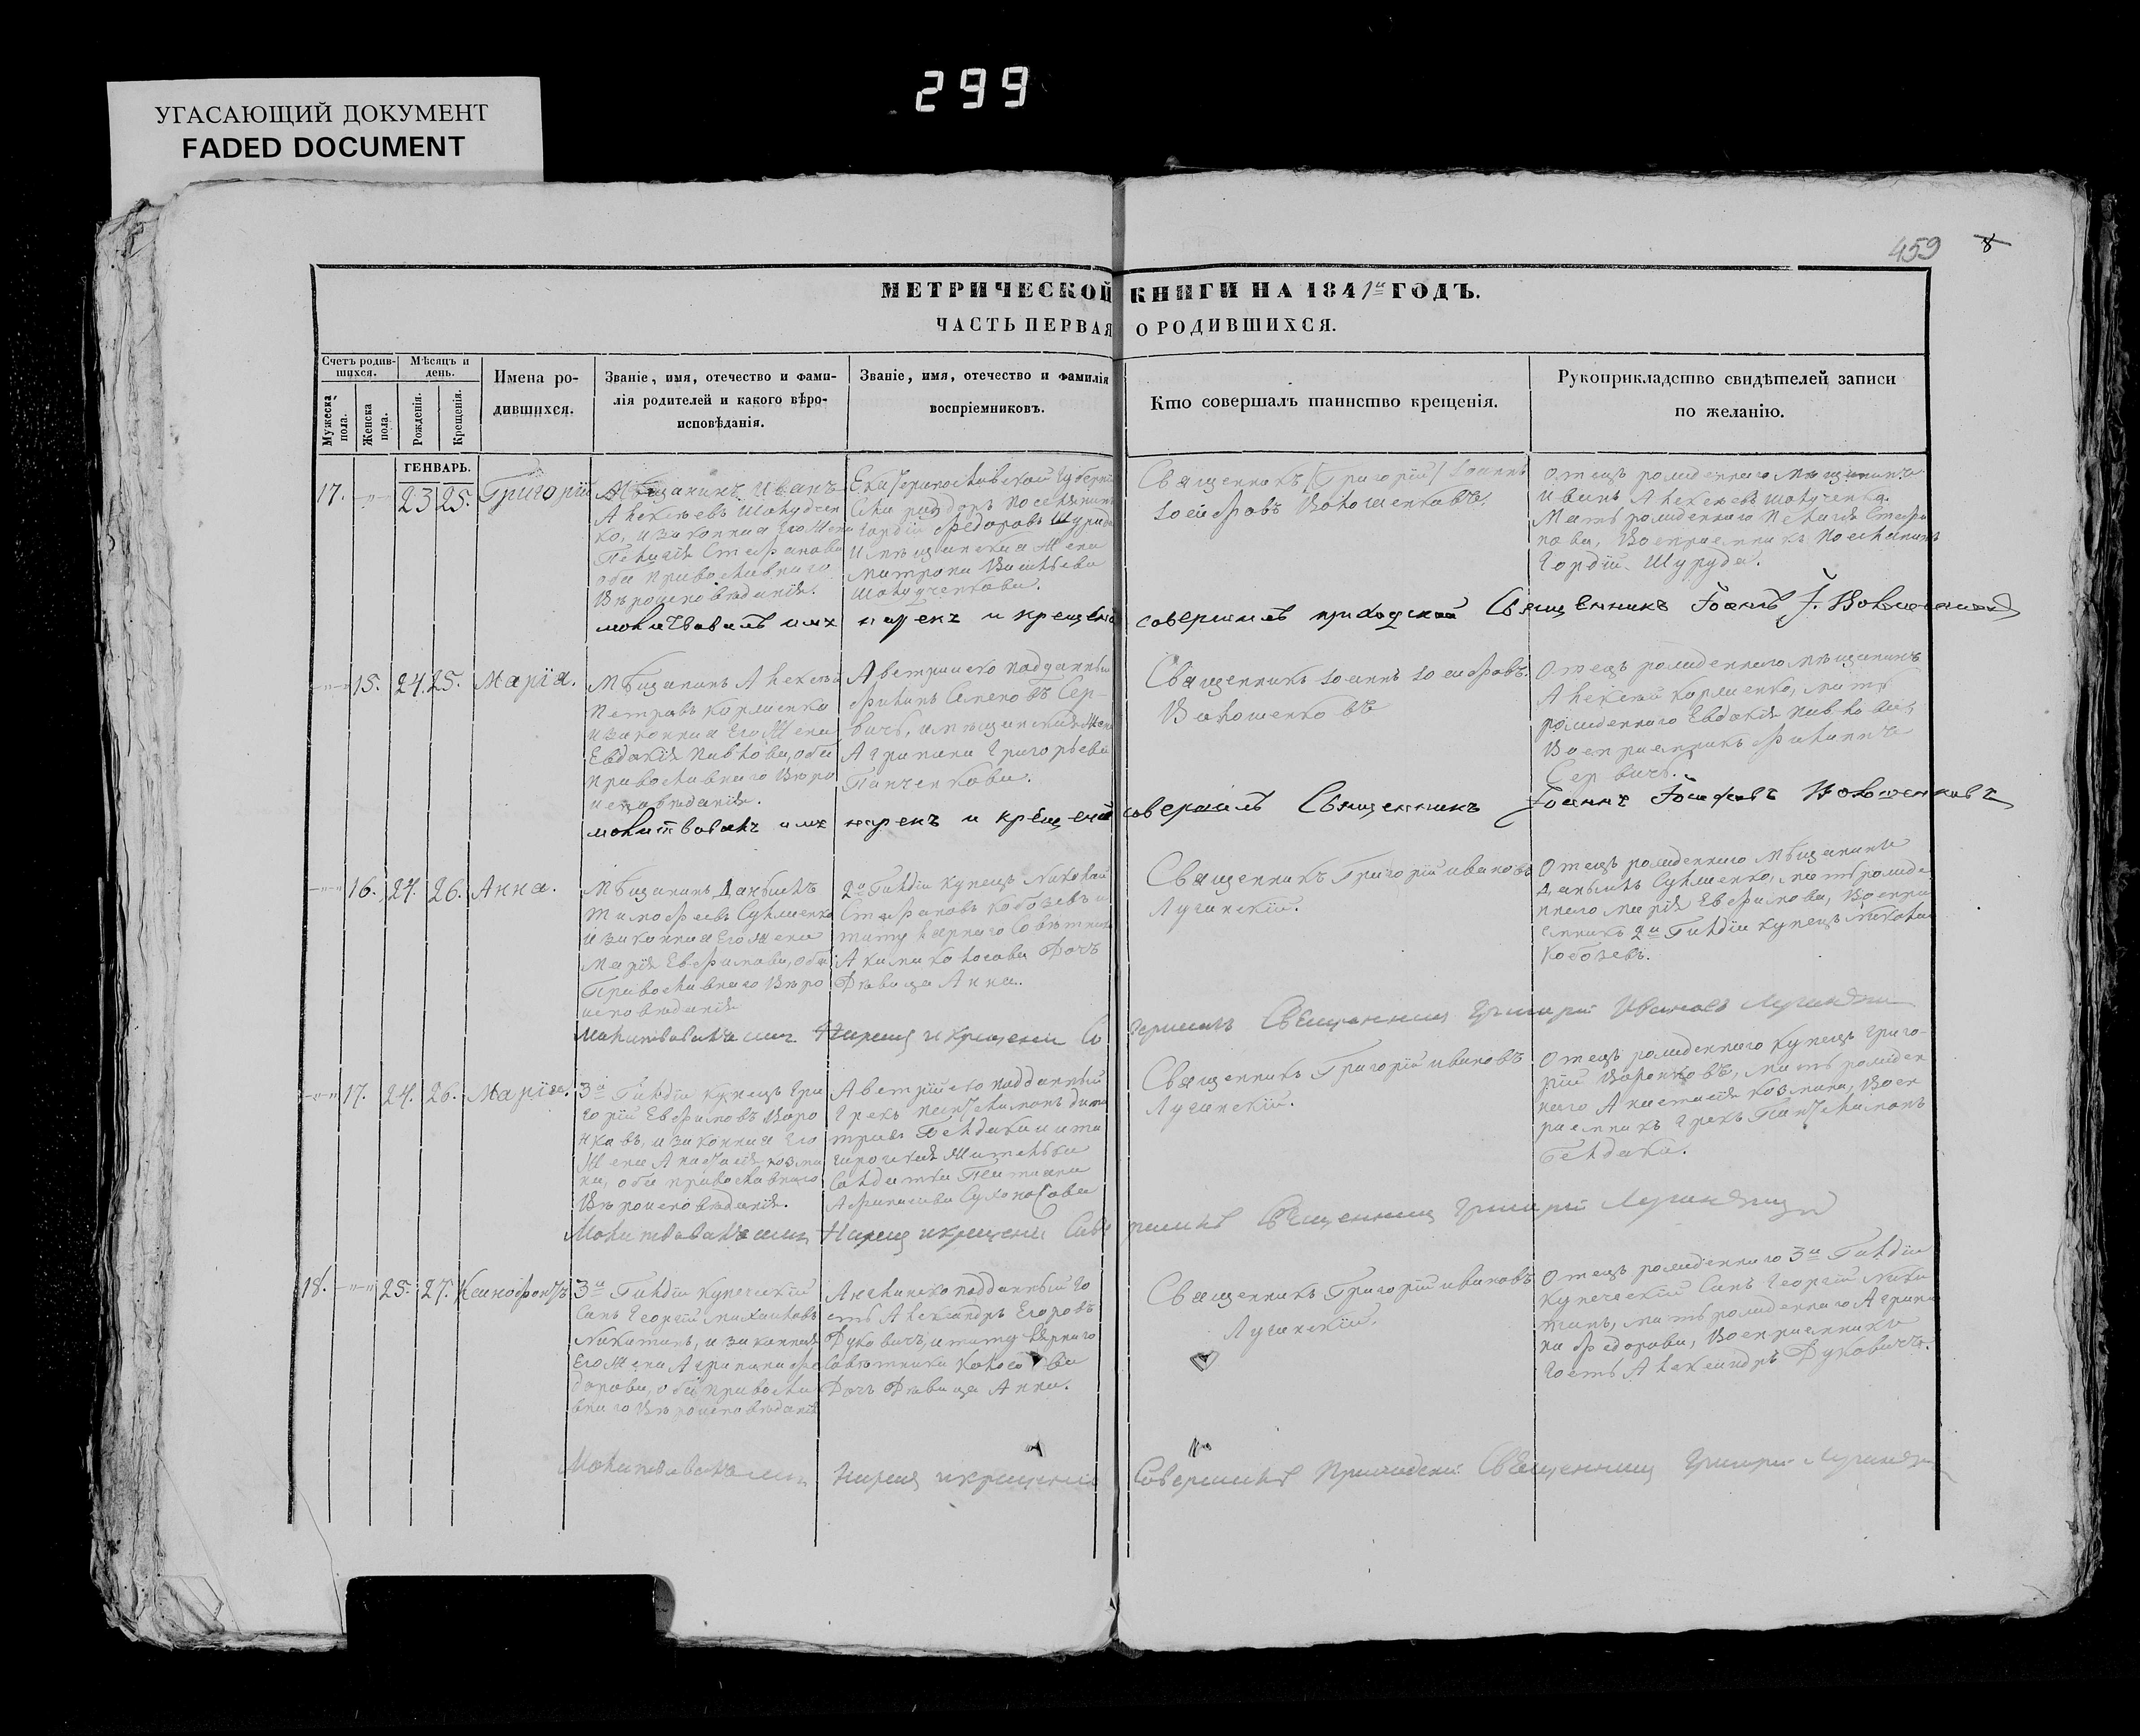 299
УГАСАЮЩИЙ ДОКУМЕНТ
FADED DOCUMENT
459 8
МЕТРИЧЕСКОЙ КНИГИ НА 1841й ГОДЪ.
ЧАСТЬ ПЕРВАЯ О РОДИВШИХСЯ.
Счетъ родив-
шихся.
Мѣсяцъ и
день.
Мужеска
пола.
Женска
пола.
Рожденія.
Крещенія.
Имена ро-
дившихся.
Званіе, имя, отечество и фами-
лія родителей и какого вѣро-
исповѣданія.
Званіе, имя, отечество и фамилія
воспріемниковъ.
Кто совершалъ таинство крещенія.
Рукоприкладство свидѣтелей записи
по желанію.
ГЕНВАРЬ.
17. -"- 23 25. Григорій
Мѣщанинъ Иванъ
Алексѣевъ
ко, и законная его жена
Пелагія Стефанова
оба православнаго
вѣроисповѣданія.
Екатеринославской губерніи
поселянинъ
Гордій Федоровъ Шуруда
и мѣщанская жена
Матрона Васильева
Священникъ (Григорій) Іоаннъ
Іосифовъ Волошенковъ.
Отецъ рожденнаго мѣщанинъ
Иванъ Алексѣевъ
Мать рожденнаго Пелагія Стефа
нова, воспріемникъ поселянинъ
Гордій Шуруда.
молитвовалъ имя нарекъ и крещеніе совершилъ приходской Священникъ Іоаннъ І. Волошенковъ
-"- 15. 24. 25. Марія.
Мѣщанинъ Алексѣй
Петровъ Корженко
и законная его жена
Евдокія Павлова, оба
православнаго вѣро
исповѣданія.
Австрійско подданный
Филипъ Сер-
вичъ, и мѣщанская жена
Агрипина Григорьева
Панченкова.
Священникъ Іоаннъ Іосифовъ
Волошенковъ
Отецъ рожденнаго мѣщанинъ
Алексѣй Корженко, мать
рожденнаго Евдокія Павлова,
Воспріемникъ Филиппъ
Сервичъ.
молитвовалъ имя нарекъ и крещеніе совершилъ Священникъ Іоаннъ Іосифовъ Волошенковъ
-"- 16. 24. 26. Анна.
Мѣщанинъ Даніилъ
Тимофѣевъ Сукженко
и законная его жена
Марія Евфимова, оба
Православнаго вѣро
исповѣданія
2й Гильдіи купецъ Николай
Стефановъ Кобозевъ и
титулярнаго совѣтника
Акима дочь
дѣвица Анна.
Священникъ Григорій Ивановъ
Лугинскій.
Отецъ рожденнаго мѣщанинъ
Даніилъ Сукженко, мать рожде
ннаго Марія Евфимова, воспрі
емникъ 2й Гильдіи купецъ Николай
Кобозевъ.
Молитвовалъ имя нарекъ и крещеніе совершилъ Священникъ Григорій Ивановъ Лугинскій
-"- 17. 24. 26. Марія.
3й Гильдіи купецъ Гри
горій Евфимовъ Воро
нковъ, и законная его
жена Анастасія Козми
на, оба православнаго
вѣроисповѣданія.
Австрійско подданный
Грекъ Пантелимонъ Дими
тровъ
Священникъ Григорій Ивановъ
Лугинскій.
Отецъ рожденнаго купецъ Григо-
рій Воронковъ, мать рожден
наго Анастасія Козмина, Восп
ріемникъ Грекъ Пантелимонъ
Молитвовалъ имя нарекъ и крещеніе совершилъ Священникъ Григорій Лугинскій
18. -"- 25. 27. Ксенофонтъ
3й Гильдіи купеческій
Сынъ Георгій Михайловъ
Никитинъ, и законная
его жена Агрипина Фео
дорова, оба православ
внаго вѣроисповѣданія
Англинско подданный го
сть Александръ Егоровъ
Дуковичъ, и титулярнаго
Совѣтника
дочь дѣвица Анна.
Священникъ Григорій Ивановъ
Лугинскій.
Отецъ рожденнаго 3й Гильдіи
купеческій сынъ Георгій Ники
тинъ, мать рожденнаго Агрипи
на Федорова, Воспріемникъ
гость Александръ Дуковичъ.
Молитвовалъ имя нарекъ и крещеніе Совершилъ Приходскій Священникъ Григорій Лугинскій